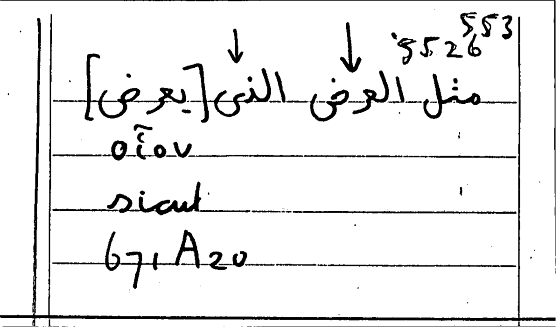 553
5526
مثل العرض الذى [يعرض]
οἷον
sicut
671 A20